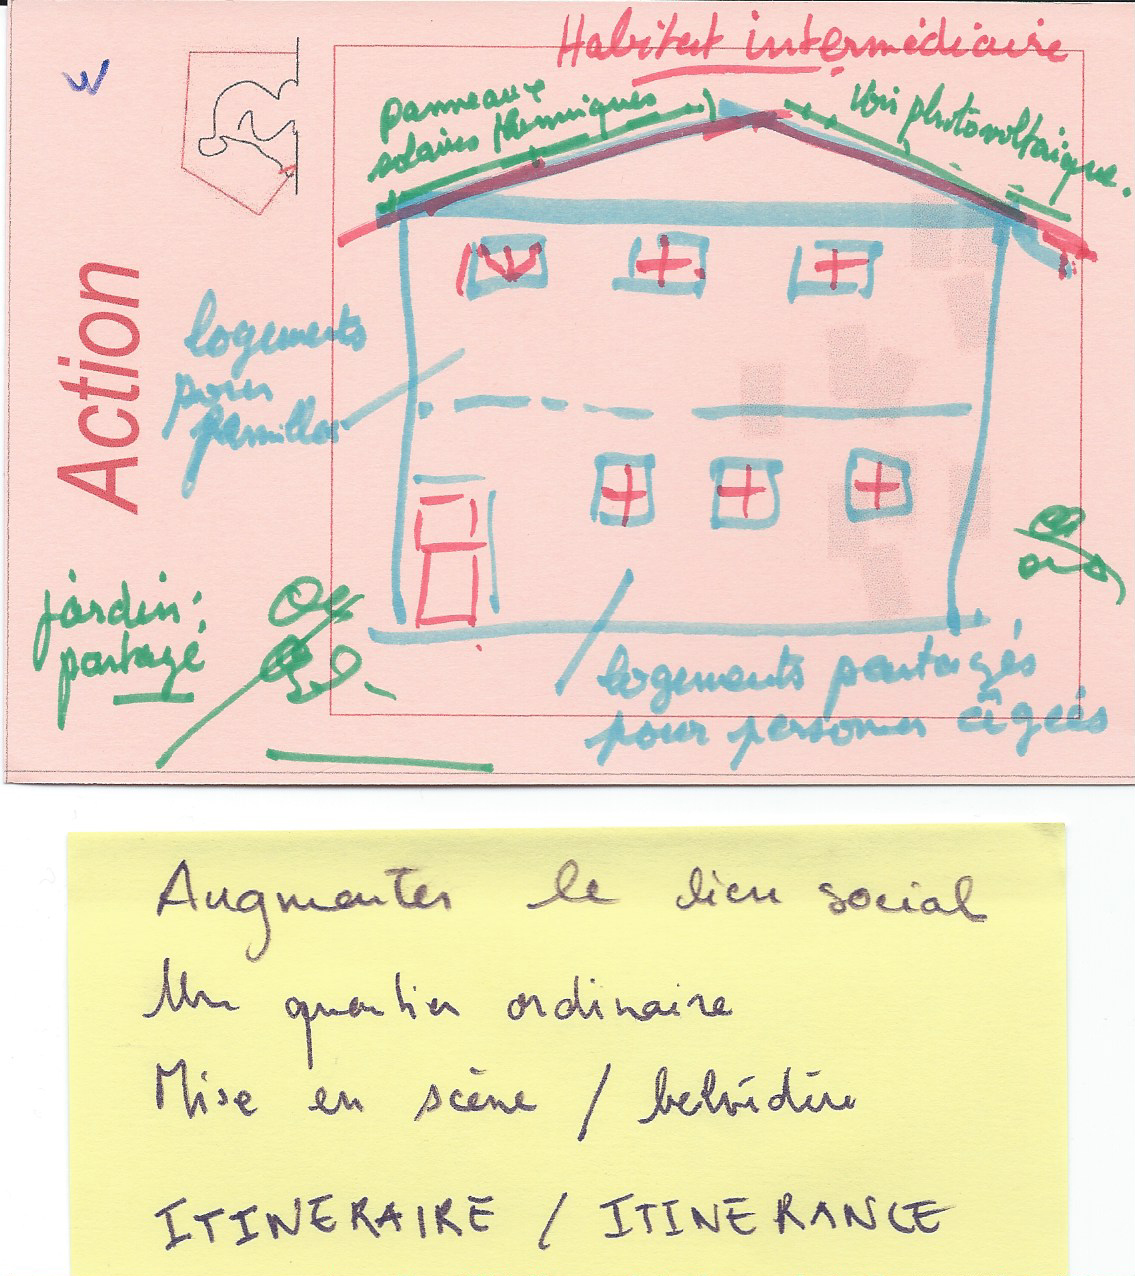 Habitat intermédiaire
panneaux
solaires thermiques
Voir photovoltaique.
Action
logements
pour
familles
jardin
partagé
logements partagés
pour personnes âgées
Augmenter le lien social
Un quartier ordinaire
Mise en scène / belvédère
ITINERAIRE / ITINERANCE